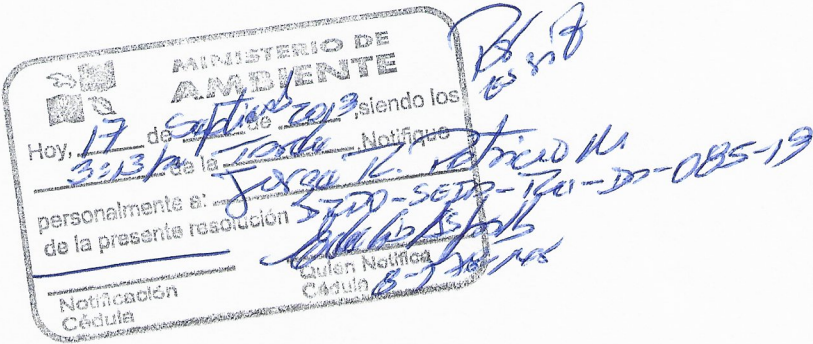 MINISTERIO DE
AMBIENTE
Por
escrito
Hoy, 17 de Septiembre de 2019, siendo los
3:13 pm de la Tarde. Notifique
personalmente a: Jorge R. Patricio M.
de la presente resolución -085-19
Notificación
Cédula
Quien Notifica
Cédula 8-